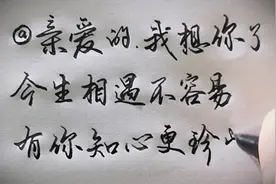 @亲爱的.我想你了
今生相遇不容易
有你知心更珍